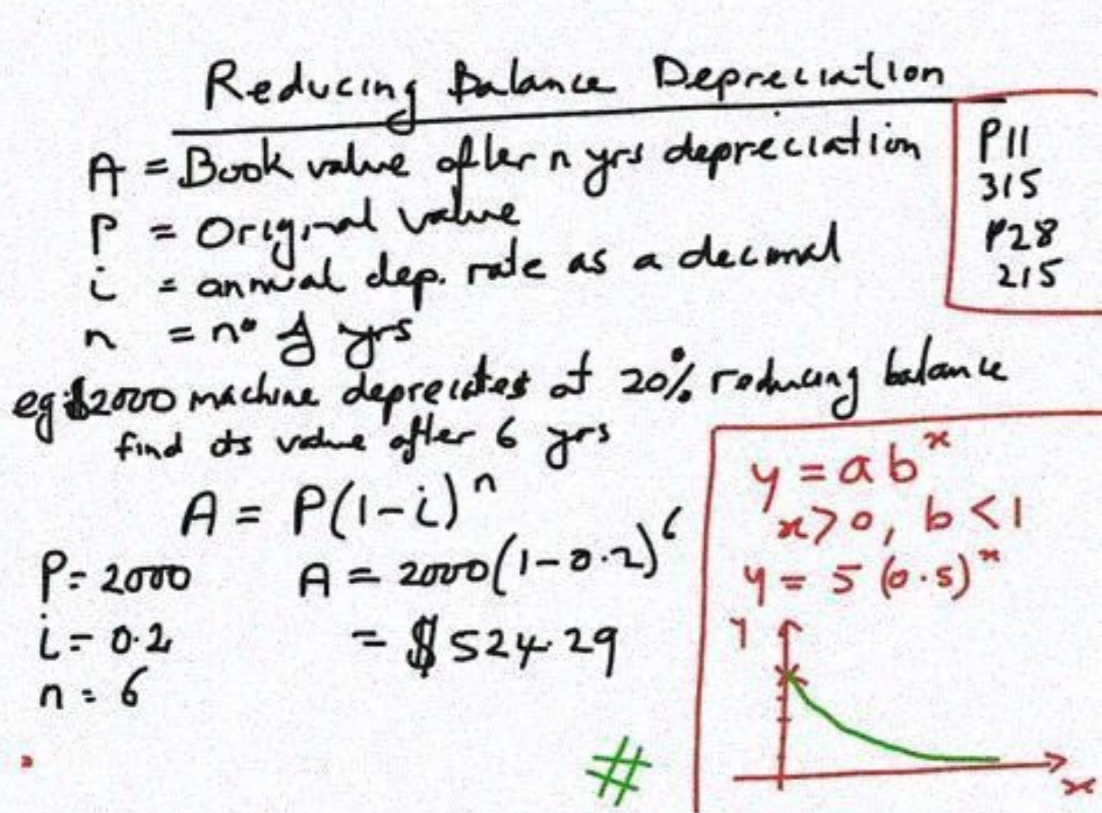 Reducing Balance Depreciation
A = Book value after n yrs depreciation
P = Original value
i = annual dep. rate as a decimal
n = nº of yrs
P11
315
P28
215
eg $2000 machine depreciates at 20% reducing balance
find its value after 6 yrs
A = P(1-i)ⁿ
P = 2000
i = 0.2
n = 6
A = 2000(1-0.2)⁶
= $524.29
y = abˣ
x>0, b<1
y = 5(0.5)ˣ
y
x
#